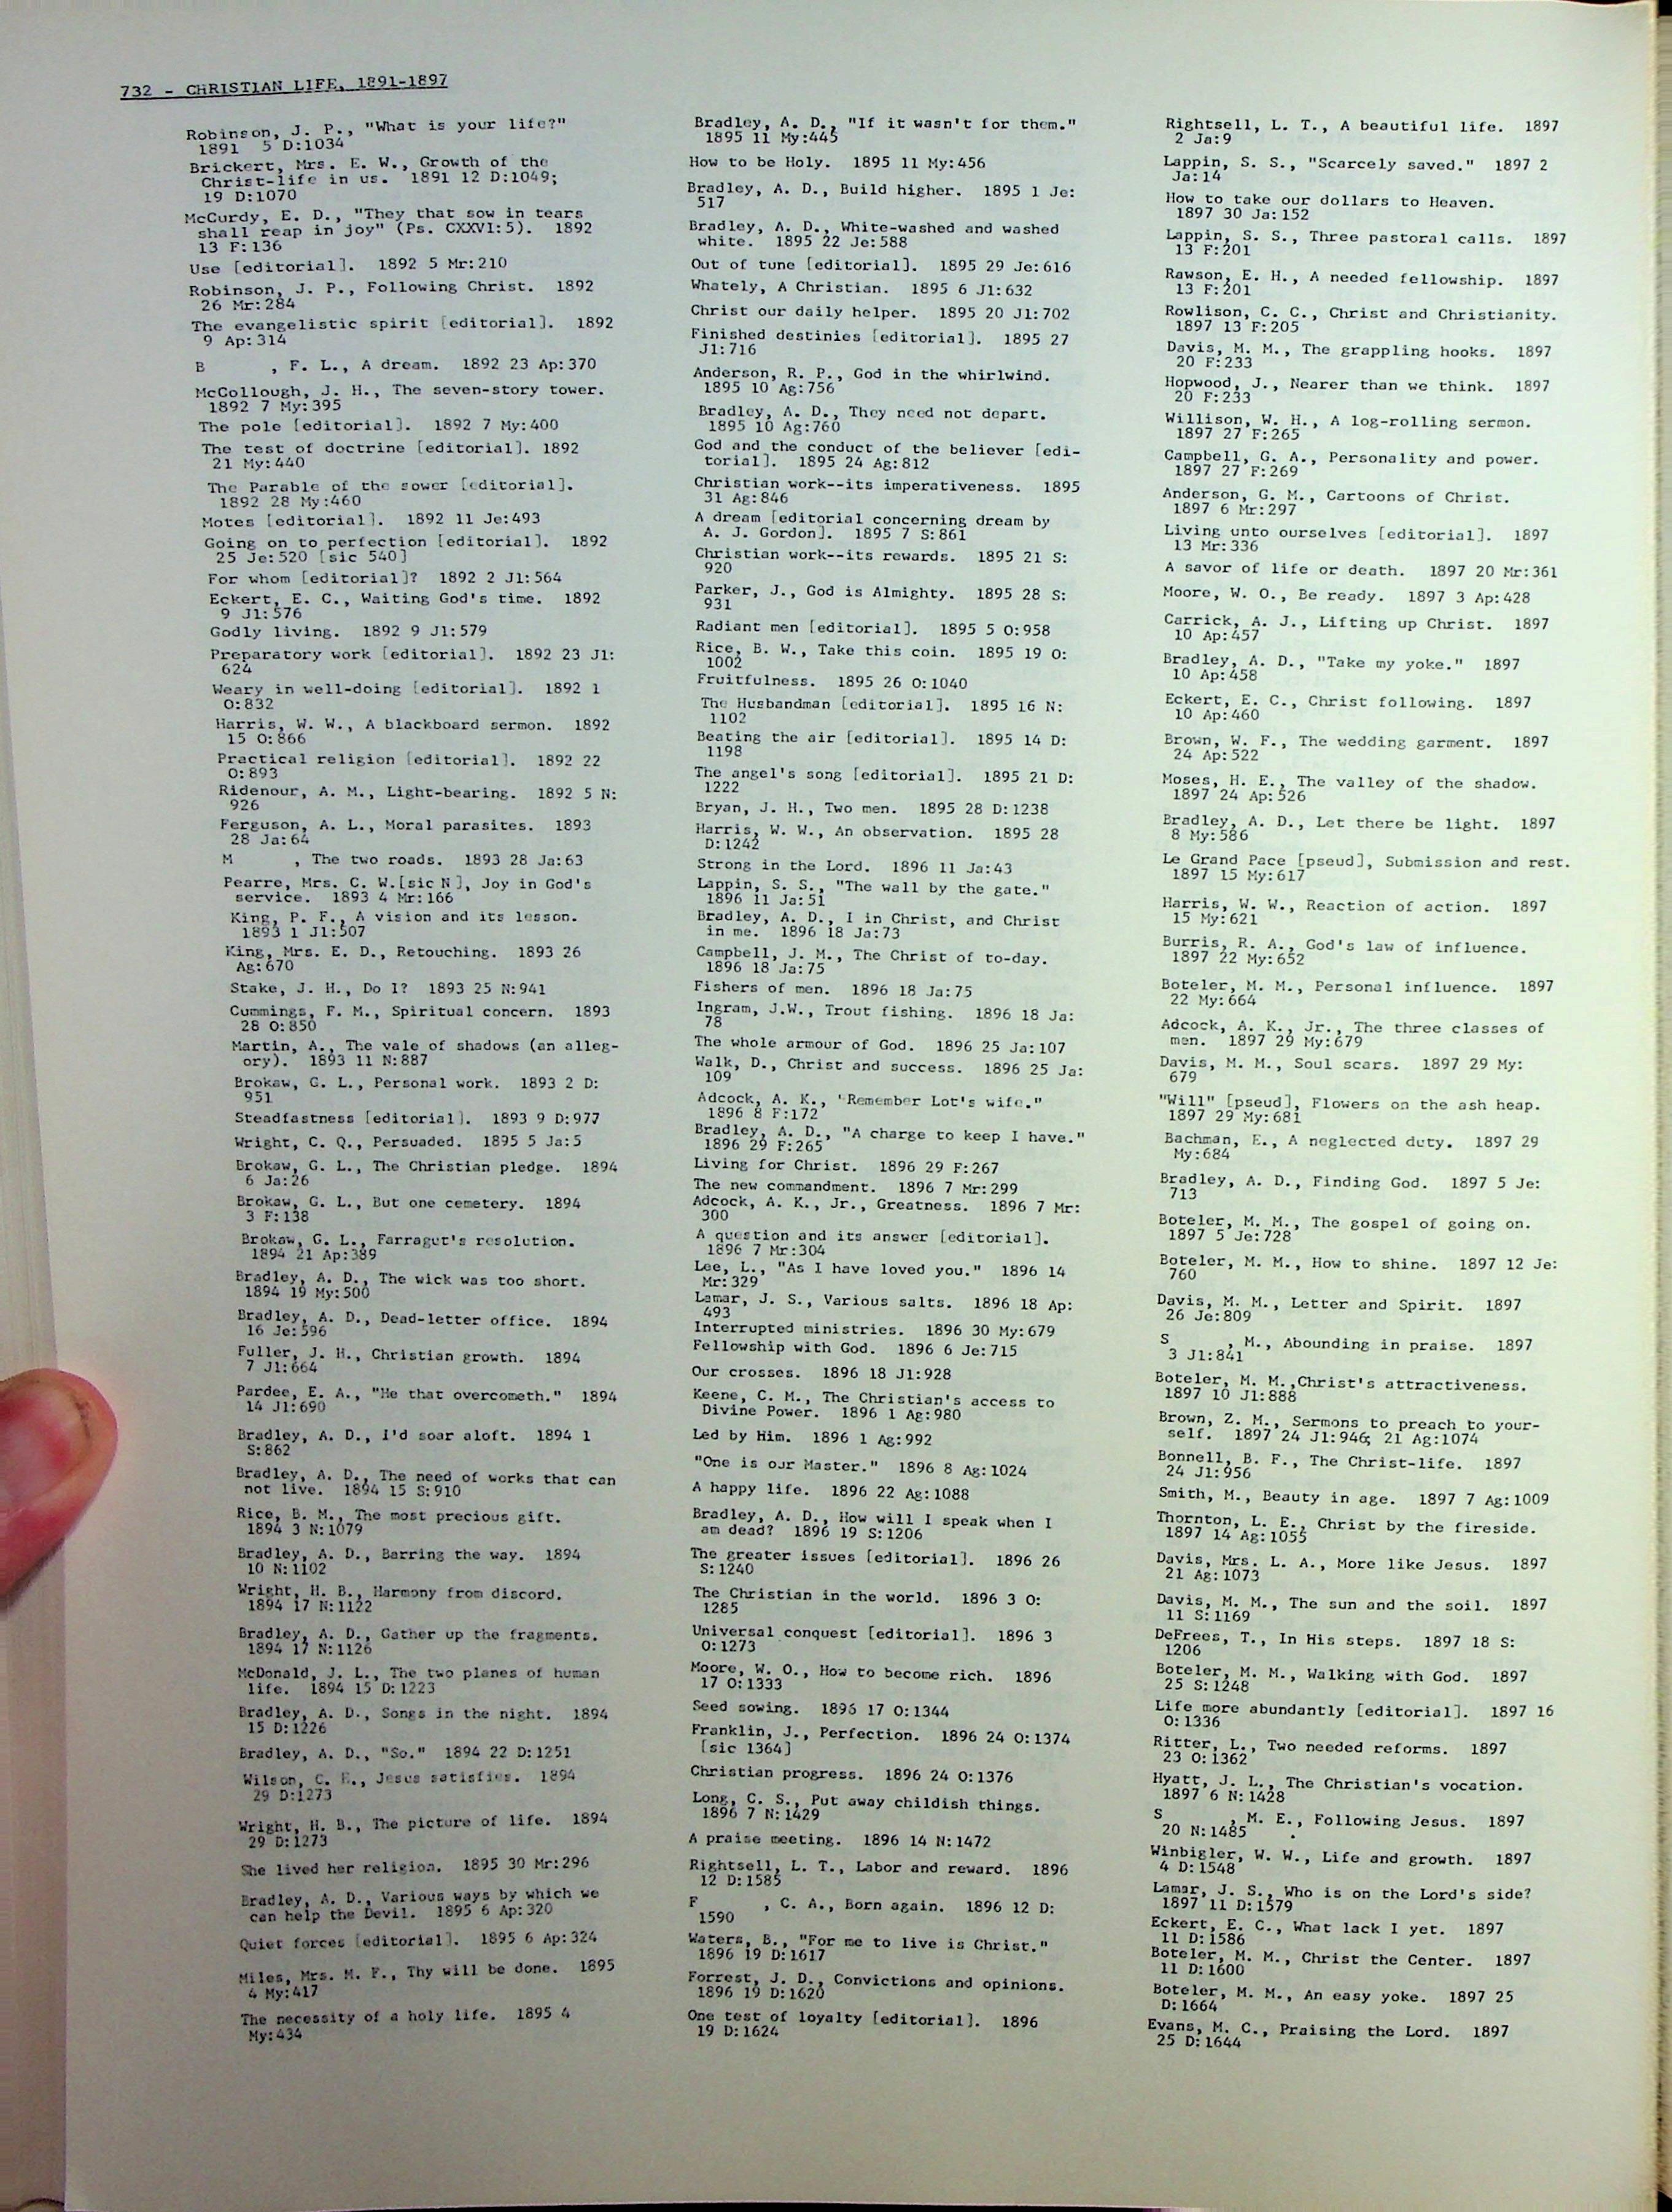 732 - CHRISTIAN LIFE, 1891-1897
Robinson, J. P., "What is your life?"
1891 5 D:1034
Brickert, Mrs. E. W., Growth of the
Christ-life in us. 1891 12 D:1049;
19 D:1070
McCurdy, E. D., "They that sow in tears
shall reap in joy" (Ps. CXXVI:5). 1892
13 F:136
Use [editorial]. 1892 5 Mr:210
Robinson, J. P., Following Christ. 1892
26 Mr:284
The evangelistic spirit [editorial]. 1892
9 Ap:314
B , F. L., A dream. 1892 23 Ap:370
McCollough, J. H., The seven-story tower.
1892 7 My:395
The pole [editorial]. 1892 7 My:400
The test of doctrine [editorial]. 1892
21 My:440
The Parable of the sower [editorial].
1892 28 My:460
Motes [editorial]. 1892 11 Je:493
Going on to perfection [editorial]. 1892
25 Je:520 [sic 540]
For whom [editorial]? 1892 2 J1:564
Eckert, E. C., Waiting God's time. 1892
9 J1:576
Godly living. 1892 9 J1:579
Preparatory work [editorial]. 1892 23 J1:
624
Weary in well-doing [editorial]. 1892 1
O:832
Harris, W. W., A blackboard sermon. 1892
15 O:866
Practical religion [editorial]. 1892 22
O:893
Ridenour, A. M., Light-bearing. 1892 5 N:
926
Ferguson, A. L., Moral parasites. 1893
28 Ja:64
M , The two roads. 1893 28 Ja:63
Pearre, Mrs. C. W.[sic N], Joy in God's
service. 1893 4 Mr:166
King, P. F., A vision and its lesson.
1893 1 J1:507
King, Mrs. E. D., Retouching. 1893 26
Ag:670
Stake, J. H., Do I? 1893 25 N:941
Cummings, F. M., Spiritual concern. 1893
28 O:850
Martin, A., The vale of shadows (an alleg-
ory). 1893 11 N:887
Brokaw, G. L., Personal work. 1893 2 D:
951
Steadfastness [editorial]. 1893 9 D:977
Wright, C. Q., Persuaded. 1895 5 Ja:5
Brokaw, G. L., The Christian pledge. 1894
6 Ja:26
Brokaw, G. L., But one cemetery. 1894
3 F:138
Brokaw, G. L., Farragut's resolution.
1894 21 Ap:389
Bradley, A. D., The wick was too short.
1894 19 My:500
Bradley, A. D., Dead-letter office. 1894
16 Je:596
Fuller, J. H., Christian growth. 1894
7 J1:664
Pardee, E. A., "He that overcometh." 1894
14 J1:690
Bradley, A. D., I'd soar aloft. 1894 1
S:862
Bradley, A. D., The need of works that can
not live. 1894 15 S:910
Rice, B. M., The most precious gift.
1894 3 N:1079
Bradley, A. D., Barring the way. 1894
10 N:1102
Wright, H. B., Harmony from discord.
1894 17 N:1122
Bradley, A. D., Gather up the fragments.
1894 17 N:1126
McDonald, J. L., The two planes of human
life. 1894 15 D:1223
Bradley, A. D., Songs in the night. 1894
15 D:1226
Bradley, A. D., "So." 1894 22 D:1251
Wilson, C. E., Jesus satisfies. 1894
29 D:1273
Wright, H. B., The picture of life. 1894
29 D:1273
She lived her religion. 1895 30 Mr:296
Bradley, A. D., Various ways by which we
can help the Devil. 1895 6 Ap:320
Quiet forces [editorial]. 1895 6 Ap:324
Miles, Mrs. M. F., Thy will be done. 1895
4 My:417
The necessity of a holy life. 1895 4
My:434
Bradley, A. D., "If it wasn't for them."
1895 11 My:445
How to be Holy. 1895 11 My:456
Bradley, A. D., Build higher. 1895 1 Je:
517
Bradley, A. D., White-washed and washed
white. 1895 22 Je:588
Out of tune [editorial]. 1895 29 Je:616
Whately, A Christian. 1895 6 J1:632
Christ our daily helper. 1895 20 J1:702
Finished destinies [editorial]. 1895 27
J1:716
Anderson, R. P., God in the whirlwind.
1895 10 Ag:756
Bradley, A. D., They need not depart.
1895 10 Ag:760
God and the conduct of the believer [edi-
torial]. 1895 24 Ag:812
Christian work--its imperativeness. 1895
31 Ag:846
A dream [editorial concerning dream by
A. J. Gordon]. 1895 7 S:861
Christian work--its rewards. 1895 21 S:
920
Parker, J., God is Almighty. 1895 28 S:
931
Radiant men [editorial]. 1895 5 O:958
Rice, B. W., Take this coin. 1895 19 O:
1002
Fruitfulness. 1895 26 O:1040
The Husbandman [editorial]. 1895 16 N:
1102
Beating the air [editorial]. 1895 14 D:
1198
The angel's song [editorial]. 1895 21 D:
1222
Bryan, J. H., Two men. 1895 28 D:1238
Harris, W. W., An observation. 1895 28
D:1242
Strong in the Lord. 1896 11 Ja:43
Lappin, S. S., "The wall by the gate."
1896 11 Ja:51
Bradley, A. D., I in Christ, and Christ
in me. 1896 18 Ja:73
Campbell, J. M., The Christ of to-day.
1896 18 Ja:75
Fishers of men. 1896 18 Ja:75
Ingram, J.W., Trout fishing. 1896 18 Ja:
78
The whole armour of God. 1896 25 Ja:107
Walk, D., Christ and success. 1896 25 Ja:
109
Adcock, A. K., "Remember Lot's wife."
1896 8 F:172
Bradley, A. D., "A charge to keep I have."
1896 29 F:265
Living for Christ. 1896 29 F:267
The new commandment. 1896 7 Mr:299
Adcock, A. K., Jr., Greatness. 1896 7 Mr:
300
A question and its answer [editorial].
1896 7 Mr:304
Lee, L., "As I have loved you." 1896 14
Mr:329
Lamar, J. S., Various salts. 1896 18 Ap:
493
Interrupted ministries. 1896 30 My:679
Fellowship with God. 1896 6 Je:715
Our crosses. 1896 18 J1:928
Keene, C. M., The Christian's access to
Divine Power. 1896 1 Ag:980
Led by Him. 1896 1 Ag:992
"One is our Master." 1896 8 Ag:1024
A happy life. 1896 22 Ag:1088
Bradley, A. D., How will I speak when I
am dead? 1896 19 S:1206
The greater issues [editorial]. 1896 26
S:1240
The Christian in the world. 1896 3 O:
1285
Universal conquest [editorial]. 1896 3
O:1273
Moore, W. O., How to become rich. 1896
17 O:1333
Seed sowing. 1896 17 O:1344
Franklin, J., Perfection. 1896 24 O:1374
[sic 1364]
Christian progress. 1896 24 O:1376
Long, C. S., Put away childish things.
1896 7 N:1429
A praise meeting. 1896 14 N:1472
Rightsell, L. T., Labor and reward. 1896
12 D:1585
F , C. A., Born again. 1896 12 D:
1590
Waters, B., "For me to live is Christ."
1896 19 D:1617
Forrest, J. D., Convictions and opinions.
1896 19 D:1620
One test of loyalty [editorial]. 1896
19 D:1624
Rightsell, L. T., A beautiful life. 1897
2 Ja:9
Lappin, S. S., "Scarcely saved." 1897 2
Ja:14
How to take our dollars to Heaven.
1897 30 Ja:152
Lappin, S. S., Three pastoral calls. 1897
13 F:201
Rawson, E. H., A needed fellowship. 1897
13 F:201
Rowlison, C. C., Christ and Christianity.
1897 13 F:205
Davis, M. M., The grappling hooks. 1897
20 F:233
Hopwood, J., Nearer than we think. 1897
20 F:233
Willison, W. H., A log-rolling sermon.
1897 27 F:265
Campbell, G. A., Personality and power.
1897 27 F:269
Anderson, G. M., Cartoons of Christ.
1897 6 Mr:297
Living unto ourselves [editorial]. 1897
13 Mr:336
A savor of life or death. 1897 20 Mr:361
Moore, W. O., Be ready. 1897 3 Ap:428
Carrick, A. J., Lifting up Christ. 1897
10 Ap:457
Bradley, A. D., "Take my yoke." 1897
10 Ap:458
Eckert, E. C., Christ following. 1897
10 Ap:460
Brown, W. F., The wedding garment. 1897
24 Ap:522
Moses, H. E., The valley of the shadow.
1897 24 Ap:526
Bradley, A. D., Let there be light. 1897
8 My:586
Le Grand Pace [pseud], Submission and rest.
1897 15 My:617
Harris, W. W., Reaction of action. 1897
15 My:621
Burris, R. A., God's law of influence.
1897 22 My:652
Boteler, M. M., Personal influence. 1897
22 My:664
Adcock, A. K., Jr., The three classes of
men. 1897 29 My:679
Davis, M. M., Soul scars. 1897 29 My:
679
"Will" [pseud], Flowers on the ash heap.
1897 29 My:681
Bachman, E., A neglected duty. 1897 29
My:684
Bradley, A. D., Finding God. 1897 5 Je:
713
Boteler, M. M., The gospel of going on.
1897 5 Je:728
Boteler, M. M., How to shine. 1897 12 Je:
760
Davis, M. M., Letter and Spirit. 1897
26 Je:809
S , M., Abounding in praise. 1897
3 J1:841
Boteler, M. M.,Christ's attractiveness.
1897 10 J1:888
Brown, Z. M., Sermons to preach to your-
self. 1897 24 J1:946; 21 Ag:1074
Bonnell, B. F., The Christ-life. 1897
24 J1:956
Smith, M., Beauty in age. 1897 7 Ag:1009
Thornton, L. E., Christ by the fireside.
1897 14 Ag:1055
Davis, Mrs. L. A., More like Jesus. 1897
21 Ag:1073
Davis, M. M., The sun and the soil. 1897
11 S:1169
DeFrees, T., In His steps. 1897 18 S:
1206
Boteler, M. M., Walking with God. 1897
25 S:1248
Life more abundantly [editorial]. 1897 16
O:1336
Ritter, L., Two needed reforms. 1897
23 O:1362
Hyatt, J. L., The Christian's vocation.
1897 6 N:1428
S , M. E., Following Jesus. 1897
20 N:1485
Winbigler, W. W., Life and growth. 1897
4 D:1548
Lamar, J. S., Who is on the Lord's side?
1897 11 D:1579
Eckert, E. C., What lack I yet. 1897
11 D:1586
Boteler, M. M., Christ the Center. 1897
11 D:1600
Boteler, M. M., An easy yoke. 1897 25
D:1664
Evans, M. C., Praising the Lord. 1897
25 D:1644